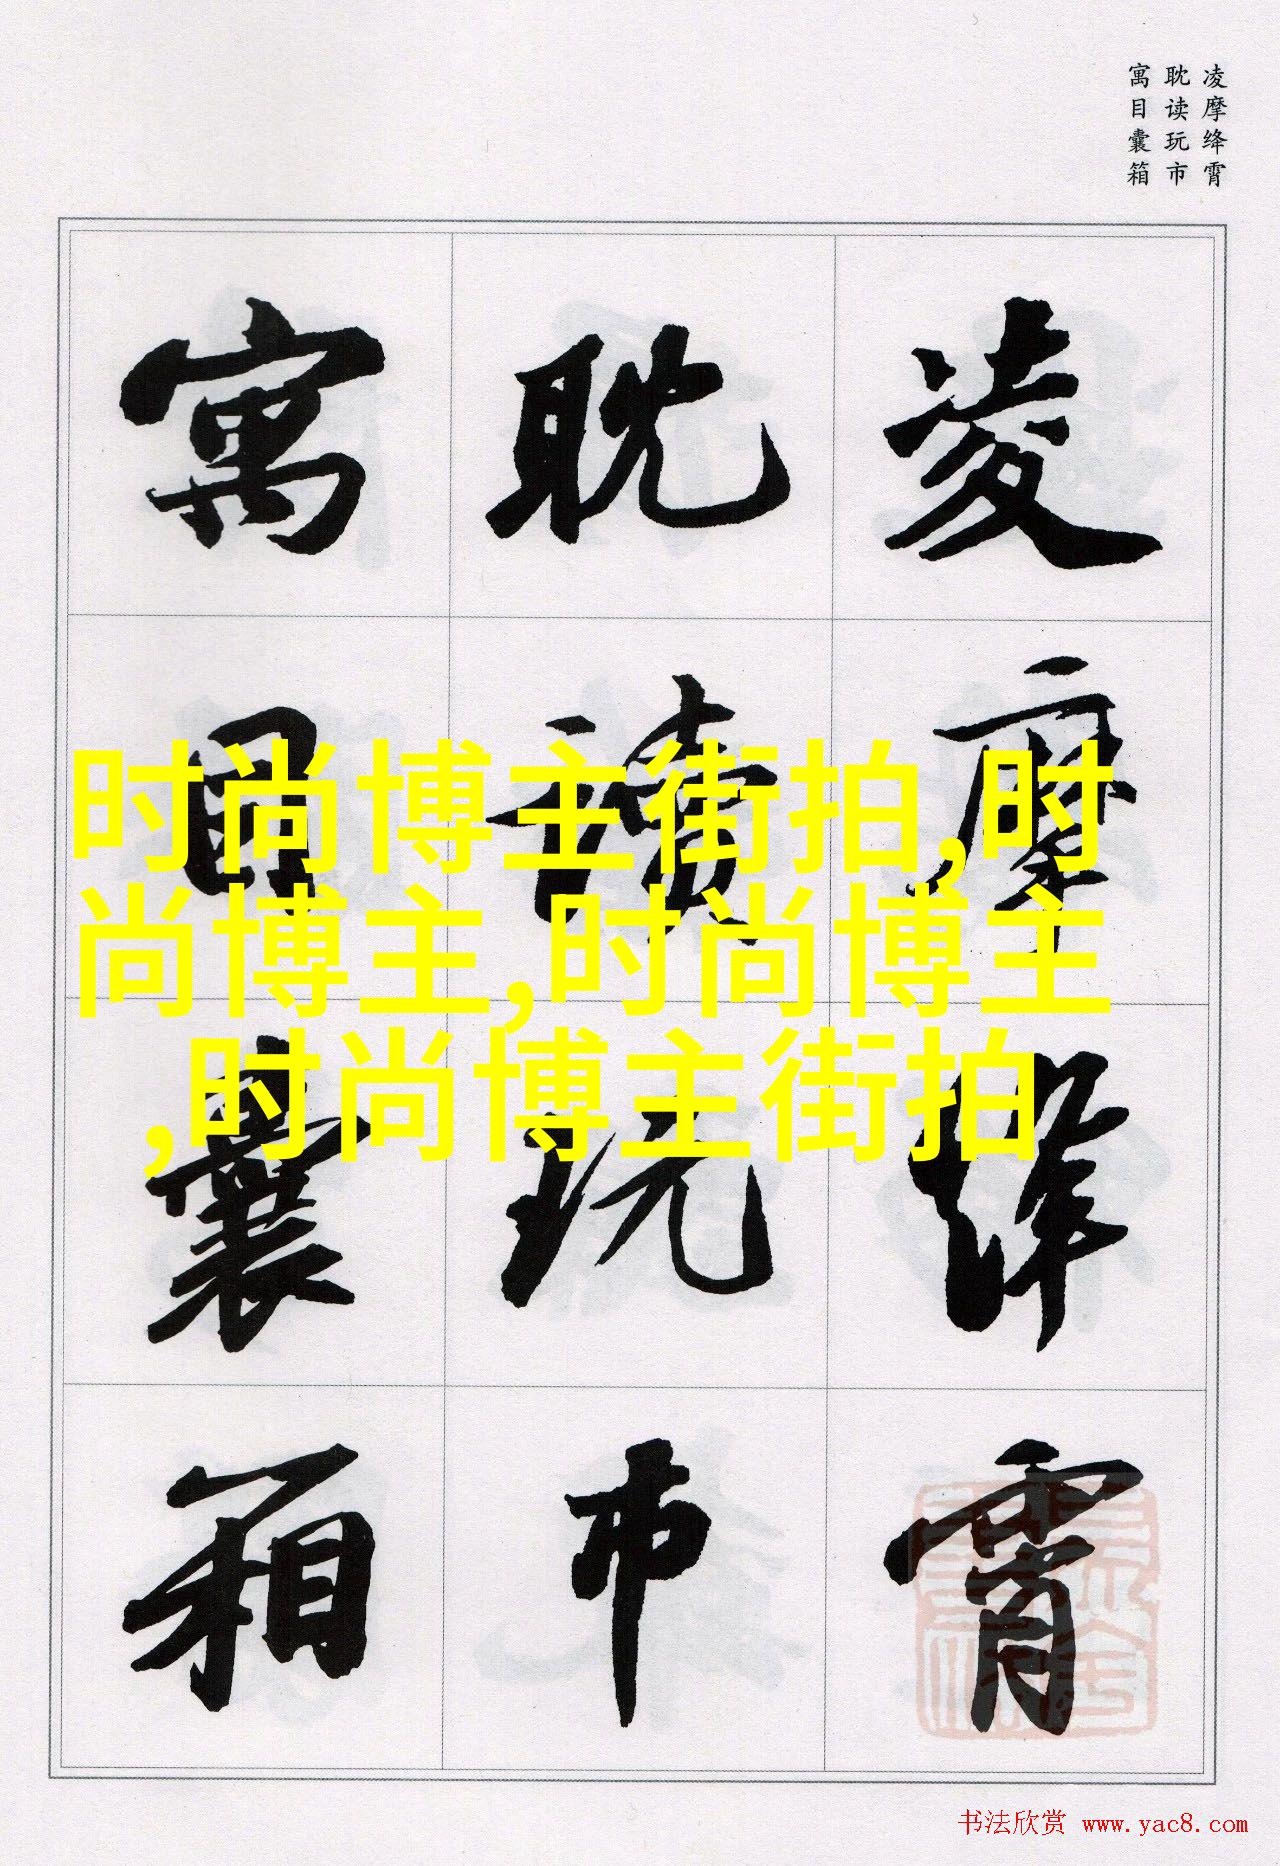 凌摩绛霄
耽读玩市
寓目囊箱
凌摩絳霄
耽讀玩市
寓目囊箱
时尚博主街拍,时
尚博主,时尚博主
,时尚博主街拍
书法欣赏 www.yac8.com